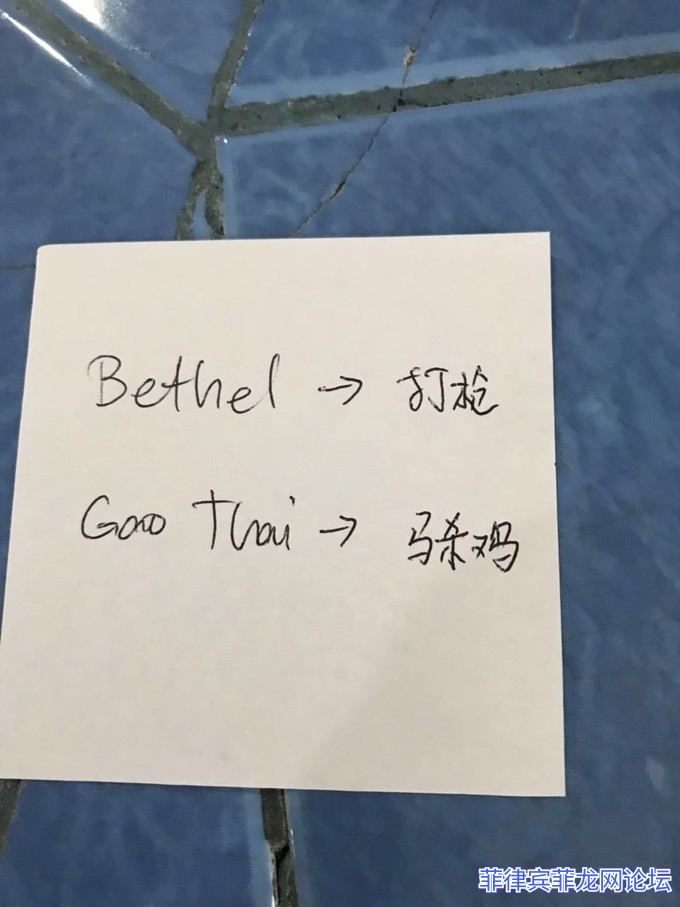 Bethel → 打枪
Goo Thai → 马杀鸡
菲律宾菲龙网论坛